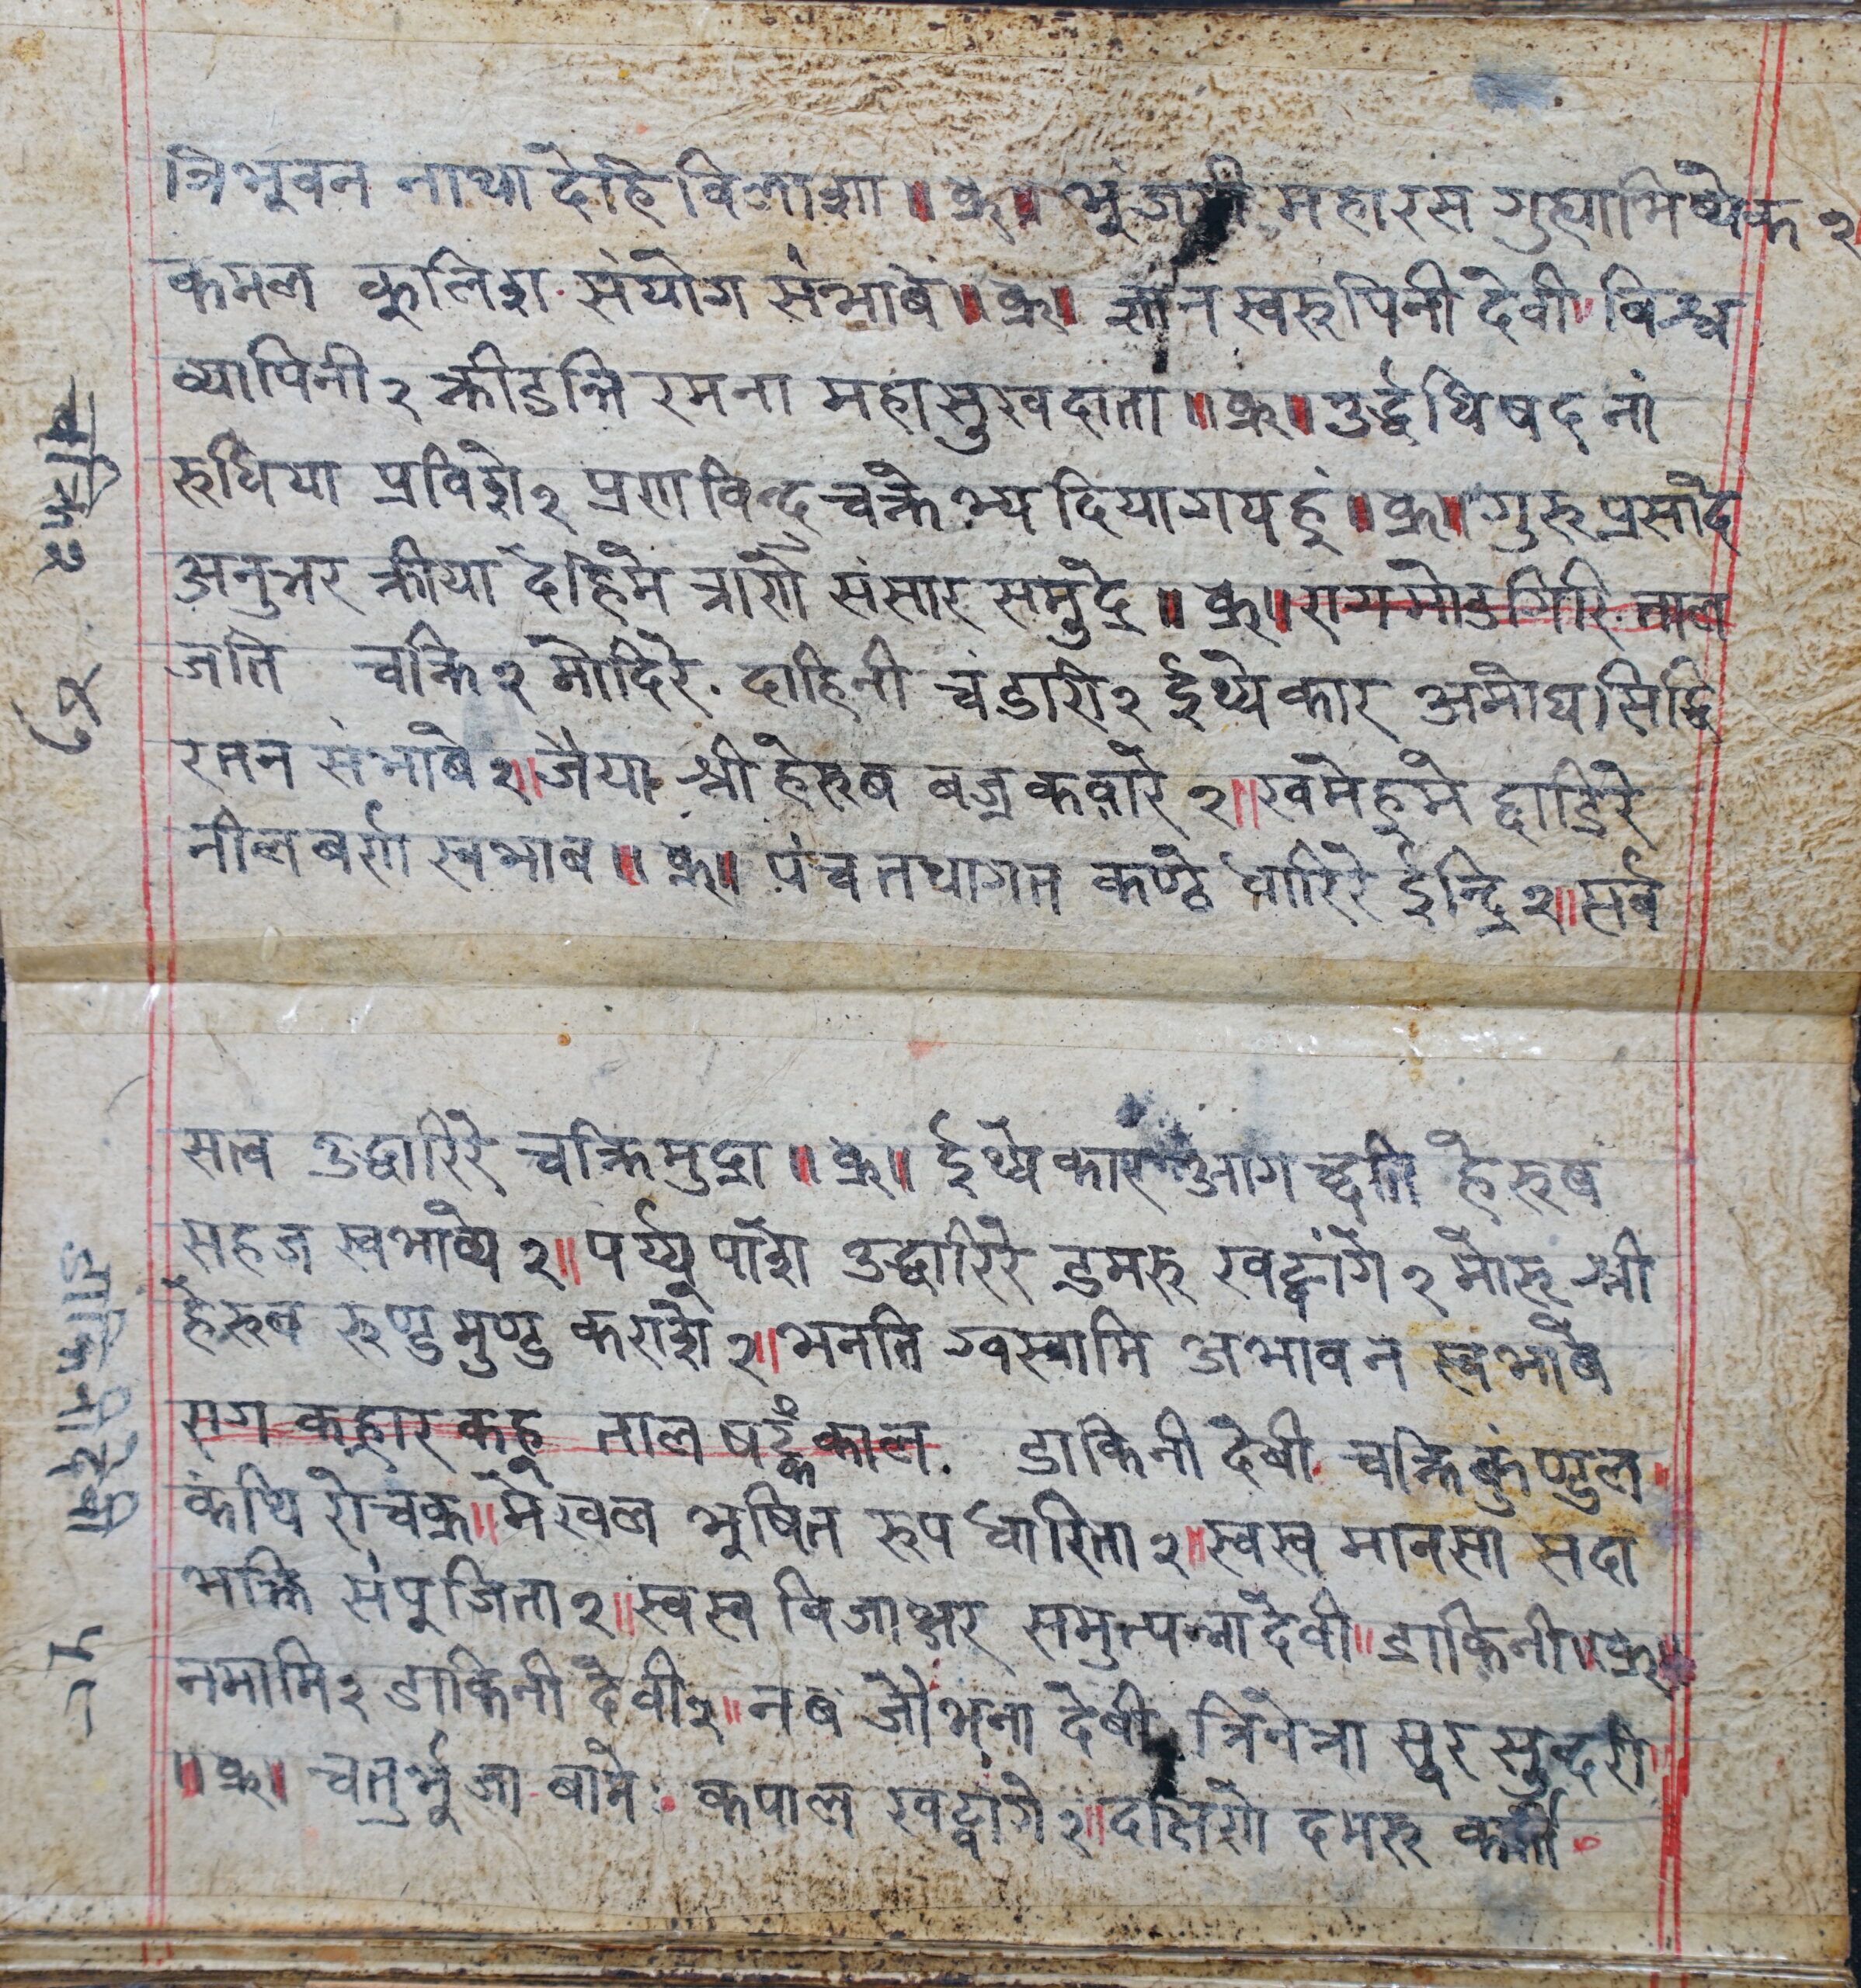 त्रिभुवन नाथा देहि विलाशा ॥ क्रु ॥ भुंजयी महारस गुह्याभिष्येक २
कमल कुलिश संयोग संभावे ॥ क्रु ॥ ज्ञान स्वरुपिनी देवी ॥ विश्व
व्यापिनी २ क्रीडन्ति रमना महासुखदाता ॥ क्रु ॥ उर्द्ध्वथिषदनां
रुधिया प्रविशे २ प्रणविन्दु चक्रेभ्य दियागयहुं ॥ क्रु ॥ गुरु प्रसादे
अनुत्तर क्रीया देहिमे त्राणे संसार समुद्रे ॥ क्रु ॥ राग मोडगिरि ताल
जति चक्रि २ मोदिरे दाहिनी चंडारी २ ईथ्येकार अमोघसिद्धि
रतन संभावे २ ॥ जैया श्री हेरुव वज्र कवारे २ ॥ खमेहुमे द्वाडिरे
नील वर्ण स्वभाव ॥ क्रु ॥ पंच तथागत कण्ठे धारिरे ईन्द्रि २ ॥ सर्व
सत्व उद्धारिरे चक्रि मुद्रा ॥ क्रु ॥ ईथ्येकार आगछति हेरुव
सहज स्वभाव्ये २ ॥ पर्य्यु पाशे उद्धारिरे डमरु खट्वांगे २ मोरु श्री
हेरुव रुण्डमुण्ड कराशे २ ॥ भनति ग्वस्वामि अभावन स्वभावे
राग कह्रार कहु ताल षट्कंकाल डाकिनी देवी चक्रि कुंण्डल
कंथि रोचंक्रु ॥ मेखल भुषित रुप धारिता २ ॥ स्वस्व मानसा सदा
भक्ति संपुजिता २ ॥ स्वस्व विजाक्षर समुत्पन्नादेवी ॥ डाकिनी ॥ क्रु ॥
नमामि २ डाकिनी देवी २ ॥ नव जौभना देवी त्रिनेत्रा सुर सुन्दरी
॥ क्रु ॥ चतुर्भूजा वामे कपाल खट्वांगे २ ॥ दक्षिणे दमरु कर्ति
चक्रि २
डाकिनी देवी
५८